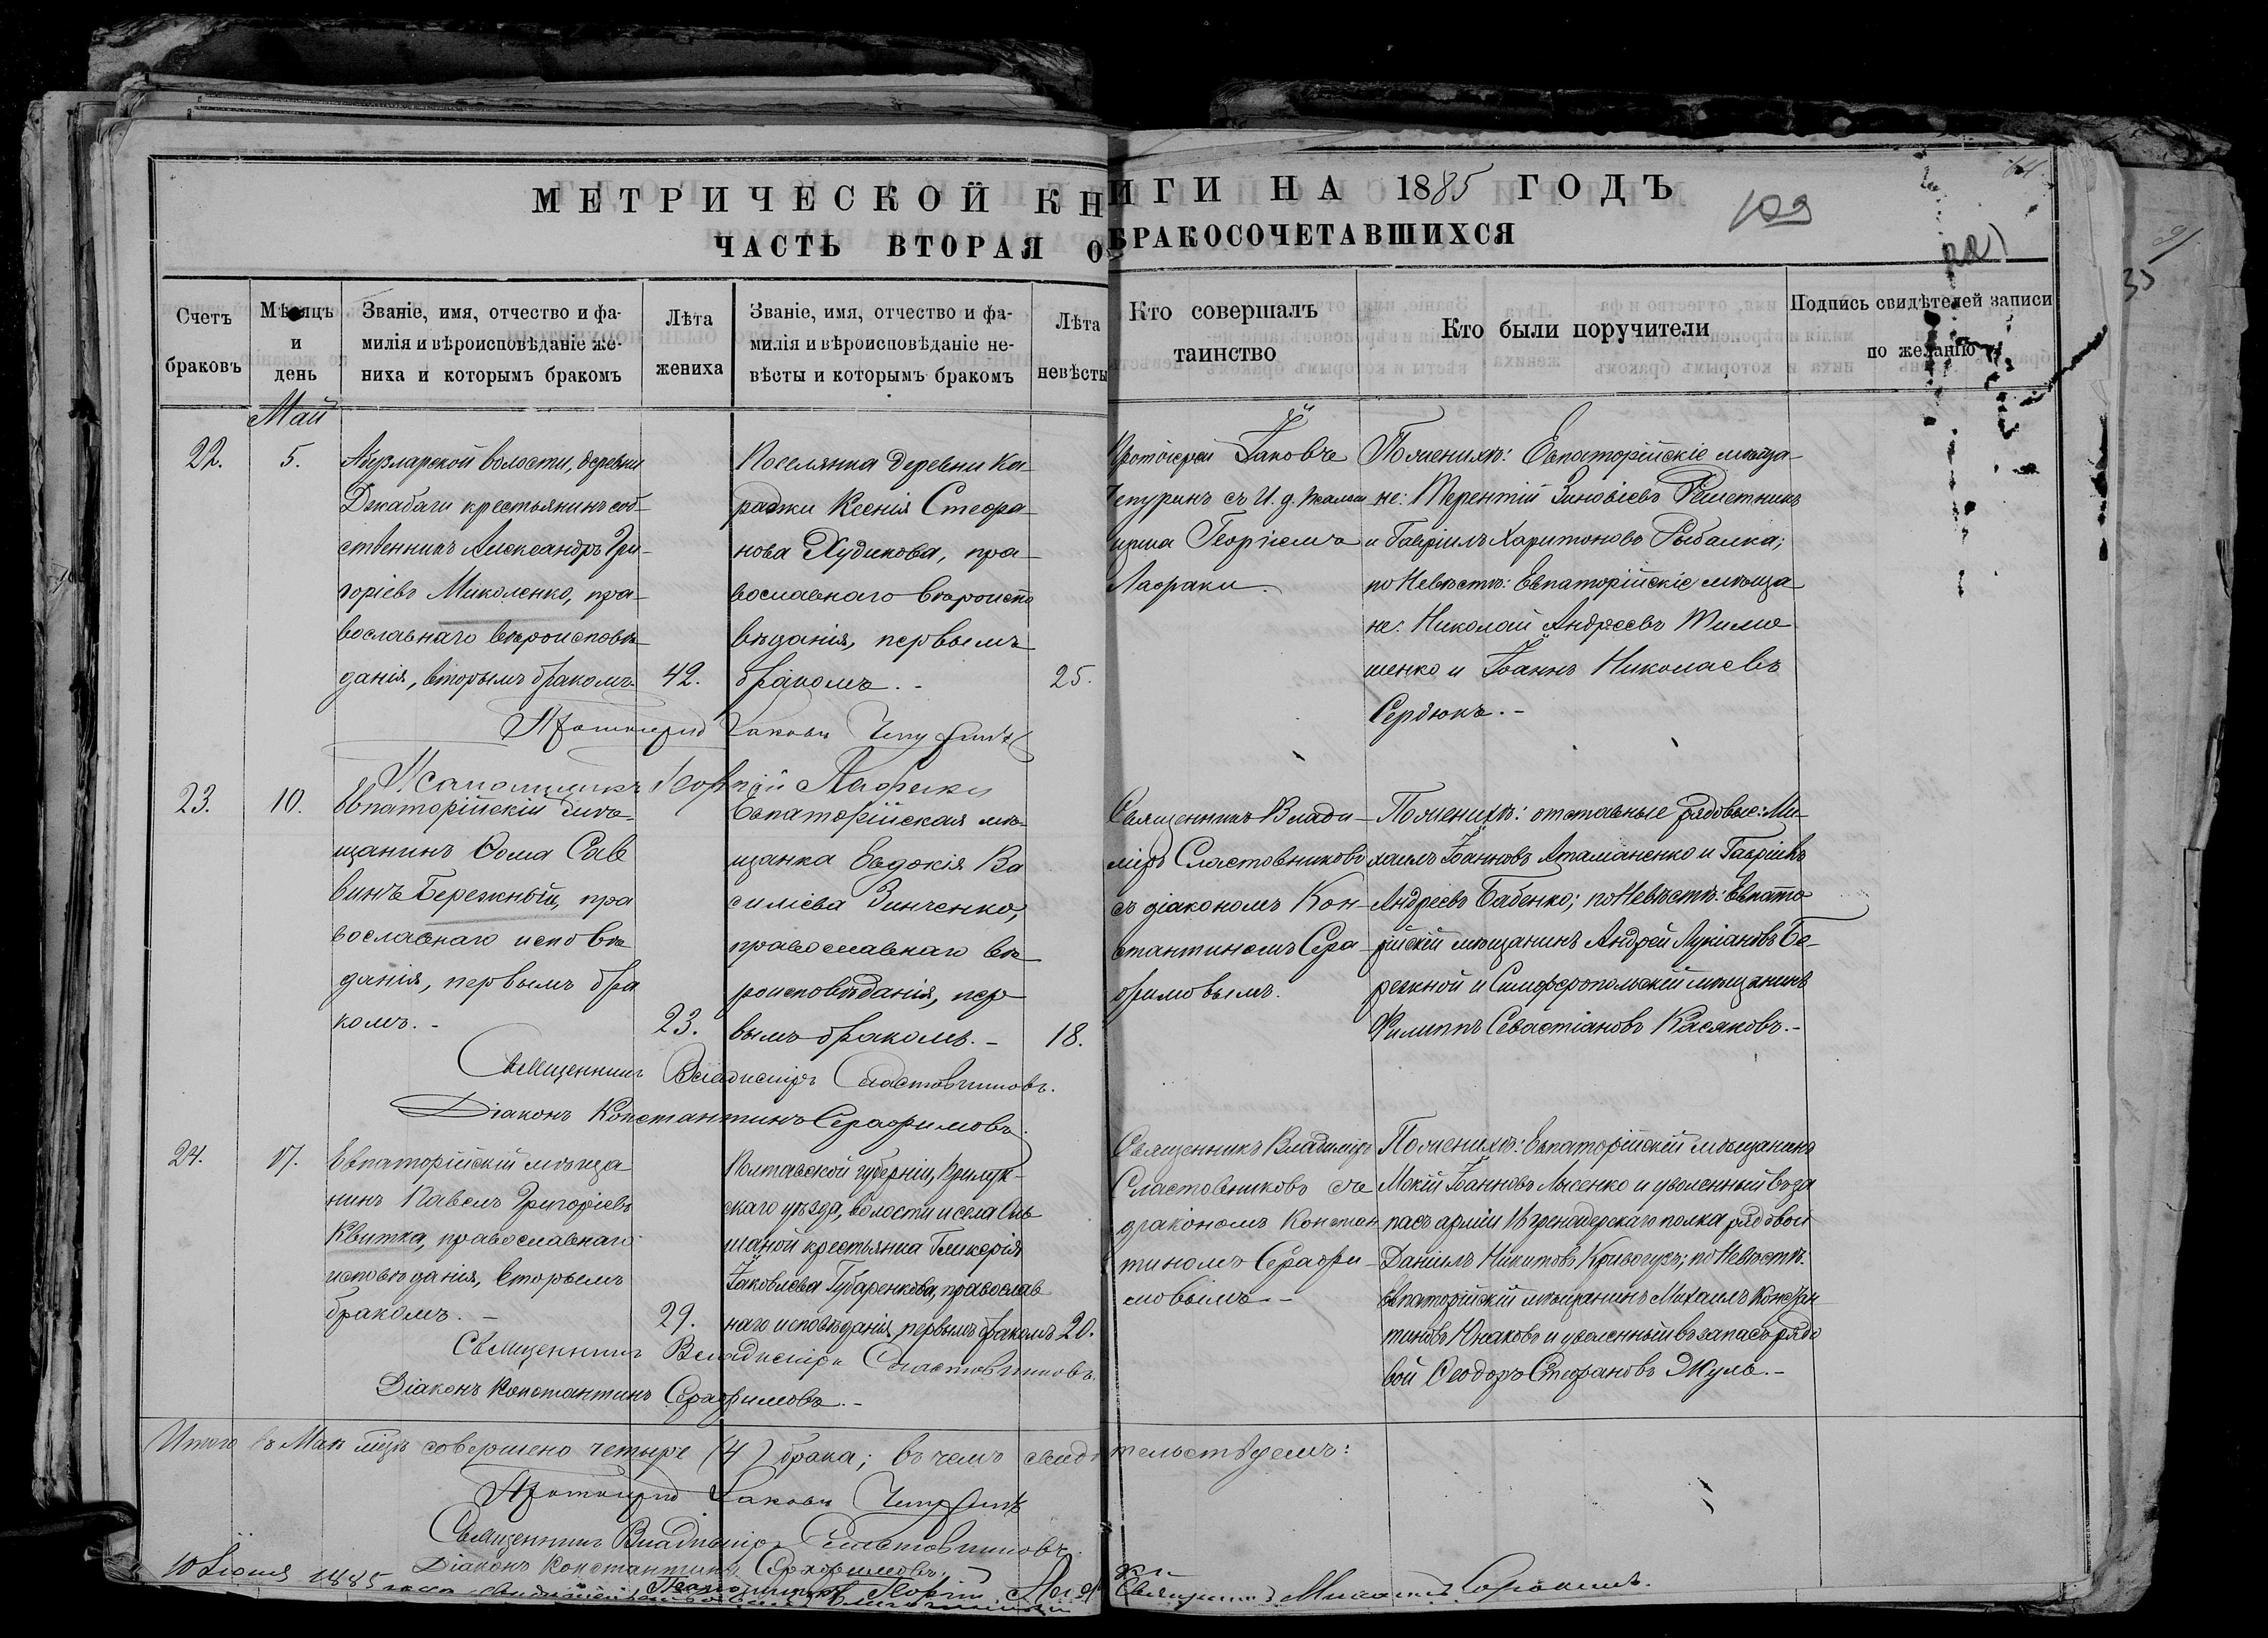 МЕТРИЧЕСКОЙ КНИГИ НА 1885 ГОДЪ
109
ЧАСТЬ ВТОРАЯ О БРАКОСОЧЕТАВШИХСЯ
Счетъ
браковъ
Мѣсяцъ
и
день
Званіе, имя, отчество и фа-
милія и вѣроисповѣданіе же-
ниха и которымъ бракомъ
Лѣта
жениха
Званіе, имя, отчество и фа-
милія и вѣроисповѣданіе не-
вѣсты и которымъ бракомъ
Лѣта
невѣсты
Кто совершалъ
таинство
Кто были поручители
Подпись свидѣтелей записи
по желанію
Май
22.
5.
Абузларской волости, деревни
Джабаги крестьянинъ соб-
ственникъ Александръ Гри-
горіевъ Миколенко, пра-
вославнаго вѣроисповѣ-
данія, вторымъ бракомъ.
42.
Поселянка деревни Ка-
раджи Ксенія Стефа-
нова Худикова, пра-
вославнаго вѣроиспо
вѣданія, первымъ
бракомъ.-
25.
Протоіерей Іаковъ
Чепуринъ съ И. д. псалом
щика Георгіемъ
Лафраки.
По женихѣ: Евпаторійскіе мѣща-
не: Терентій Зиновіевъ Решетникъ
и Гавріилъ Харитоновъ Рыбалка;
по Невѣстѣ: Евпаторійскіе мѣща
не: Николай Андреевъ Тимо
шенко и Іоаннъ Николаевъ
Сердюкъ.-
Протоіерей Іаковъ Чепуринъ
Псаломщикъ Георгій Лафраки
23.
10.
Евпаторійскій мѣ-
щанинъ Ѳома Сав
винъ Бережной, пра
вославнаго исповѣ
данія, первымъ бра
комъ.-
23.
Евпаторійская мѣ-
щанка Евдокія Ва
силіева Зинченко,
православнаго вѣ
роисповѣданія, пер
вымъ бракомъ.-
18.
Священникъ Влади-
міръ Сластовниковъ
съ діакономъ Кон-
стантиномъ Сера-
фимовымъ.
По женихѣ: отставные рядовые: Ми-
хаилъ Іоанновъ Атаманенко и Гавріилъ
Андреевъ Бабенко; по Невѣстѣ: Евпато
рійскій мѣщанинъ Андрей Лукіановъ Бе-
режной и Симферопольскій мѣщанинъ
Филиппъ Севастіановъ Касяковъ.-
Священникъ Владиміръ Сластовниковъ.
Діаконъ Константинъ Серафимовъ.
24.
17.
Евпаторійскій мѣща
нинъ Павелъ Григоріевъ
Квитка, православнаго
исповѣданія, вторымъ
бракомъ.-
29.
Полтавской губерніи, Прилук-
скаго уѣзда, волости и села Оль
шаной крестьянка Гликерія
Іаковлева Губаренкова, православ
наго исповѣданія, первымъ бракомъ
20.
Священникъ Владиміръ
Сластовниковъ съ
діакономъ Констан
тиномъ Серафи-
мовымъ.-
По женихѣ: Евпаторійскій мѣщанинъ
Мокій Іоанновъ Лысенко и уволенный въ за
пасъ арміи 16 гренадерскаго полка рядовой
Даніилъ Никитовъ Кривогузъ; по Невѣстѣ:
Евпаторійскій мѣщанинъ Михаилъ Констан
тиновъ Юнаковъ и уволенный въ запасъ рядо
вой Ѳеодоръ Стефановъ Жула.-
Священникъ Владиміръ Сластовниковъ.
Діаконъ Константинъ Серафимовъ.-
Итого въ Маѣ мѣцѣ совершено четыре (4) брака; въ чемъ свидѣтельствуемъ:
Протоіерей Іаковъ Чепуринъ
Священникъ Владиміръ Сластовниковъ.
Діаконъ Константинъ Серафимовъ.
Псаломщикъ Георгій Лафраки
10 Іюня 1885 года
Священникъ Михаилъ